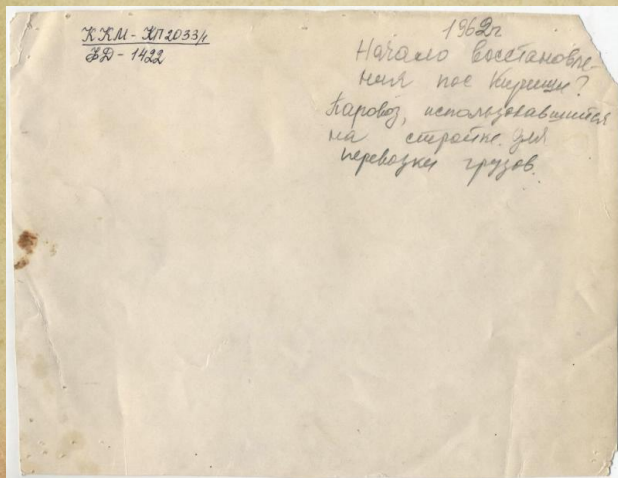 ККМ - КП 2033/1
ВД - 1422
1962г.
Начало восстановле-
ния пос Кириши?
Паровоз, использовавшийся
на стройке для
перевозки грузов.